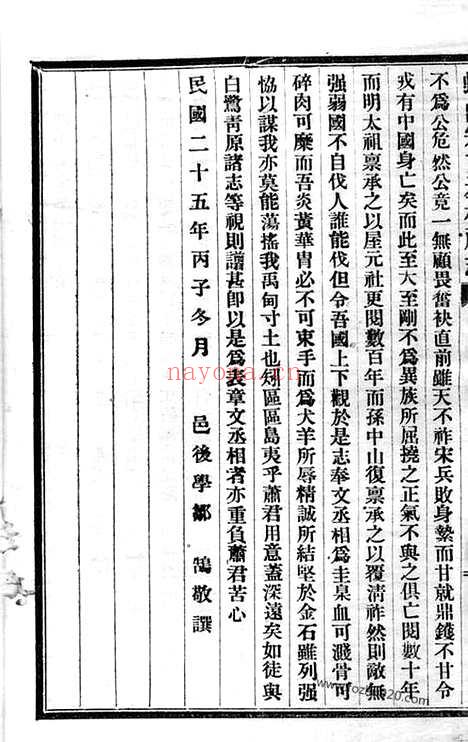 不爲公危然公竟一無顧畏奮袂直前雖天不祚宋兵敗身縶而甘就鼎鑊不甘令
戎有中國身亡矣而此至大至剛不爲異族所屈撓之正氣不與之俱亡閱數十年
而明太祖禀承之以屋元社更閱數百年而孫中山復禀承之以覆清祚然則敵無
强弱國不自伐人誰能伐但令吾國上下觀於是志奉文丞相爲圭臬血可濺骨可
碎肉可糜而吾炎黃華胄必不可束手而爲犬羊所辱精誠所結堅於金石雖列强
協以謀我亦莫能蕩搖我禹甸寸土也矧區區島夷乎蕭君用意蓋深遠矣如徒與
白鷺青原諸志等視則譾甚卽以是爲表章文丞相者亦重負蕭君苦心
民國二十五年丙子冬月 邑後學鄒 鵠敬譔
nayona.cn